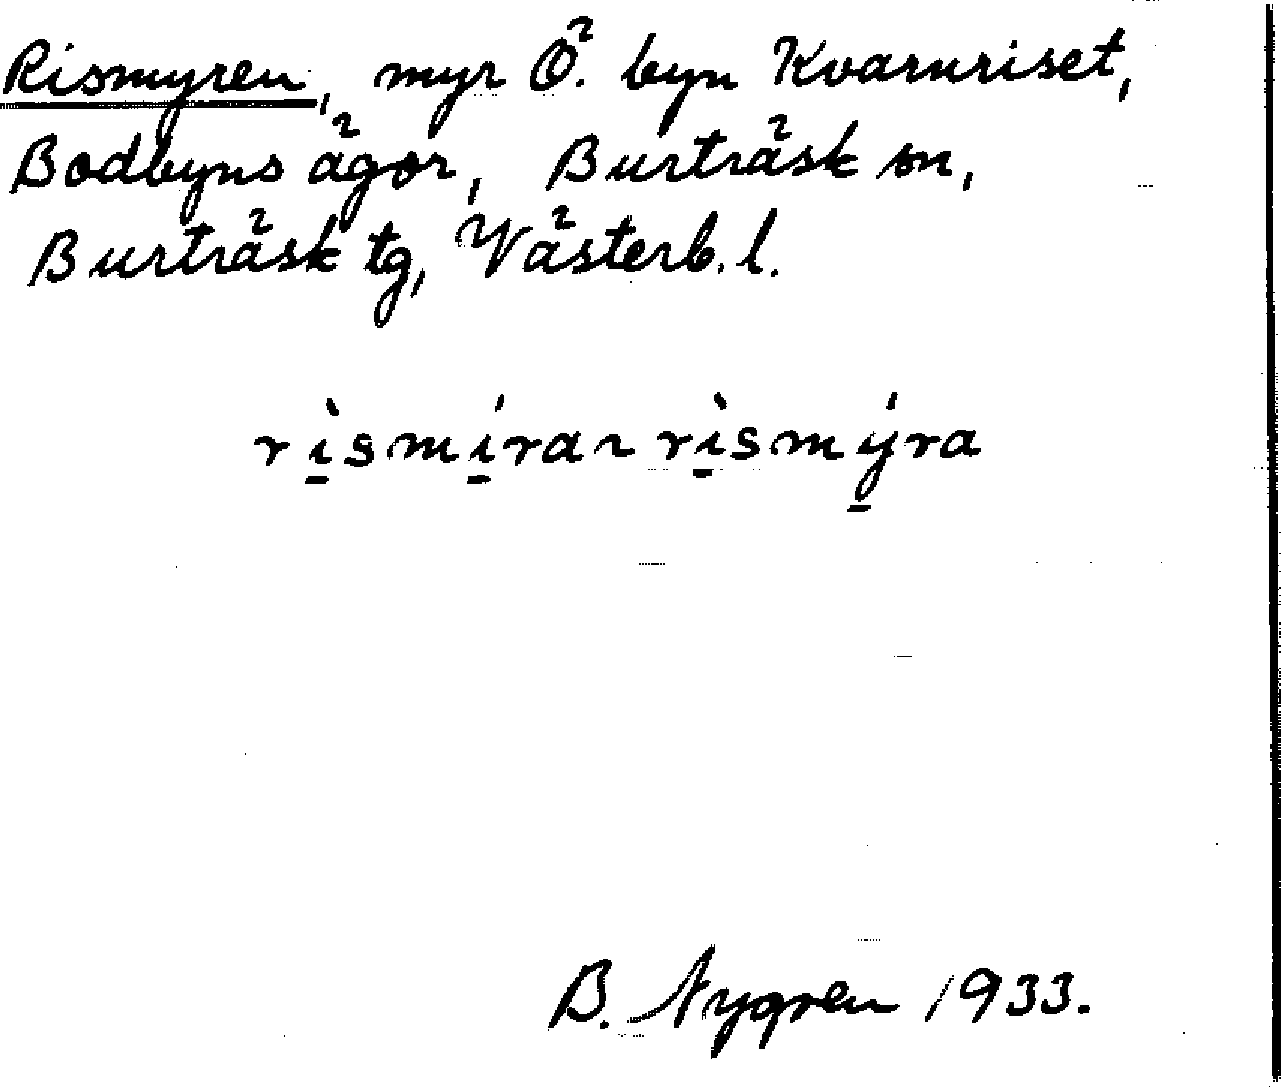 Rismyren, myr Ö. byn Kvarnriset,
Bodbyns ägor, Burträsk sn,
Burträsk tg, Västerb. l.
rı̠̀smı̠́ra ~ rı̠̀smý̠ra
B. Nygren 1933.